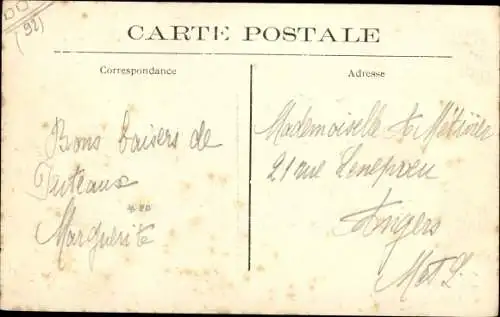 (92)
CARTE POSTALE
Correspondance
Adresse
Bons baisers de
Puteaux
Marguerite
Mademoiselle A. Métivier
21 rue Lenepveu
Angers
M et L.